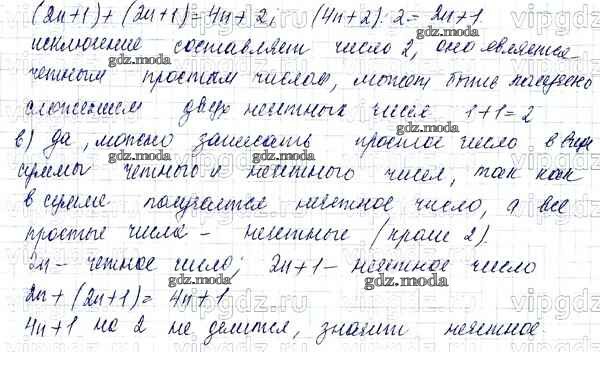 (2n+1)+(2n+1)=4n+2; (4n+2):2=2n+1.
исключение составляет число 2, оно является
четным простым числом, может быть получено
сложением двух нечетных чисел 1+1=2
в) да, можно записать простое число в виде
суммы четного и нечетного чисел, так как
в сумме получается нечетное число, а все
простые числа - нечетные (кроме 2).
2n - четное число; 2n+1 - нечетное число
2n+(2n+1)=4n+1
4n+1 на 2 не делится, значит нечетное.